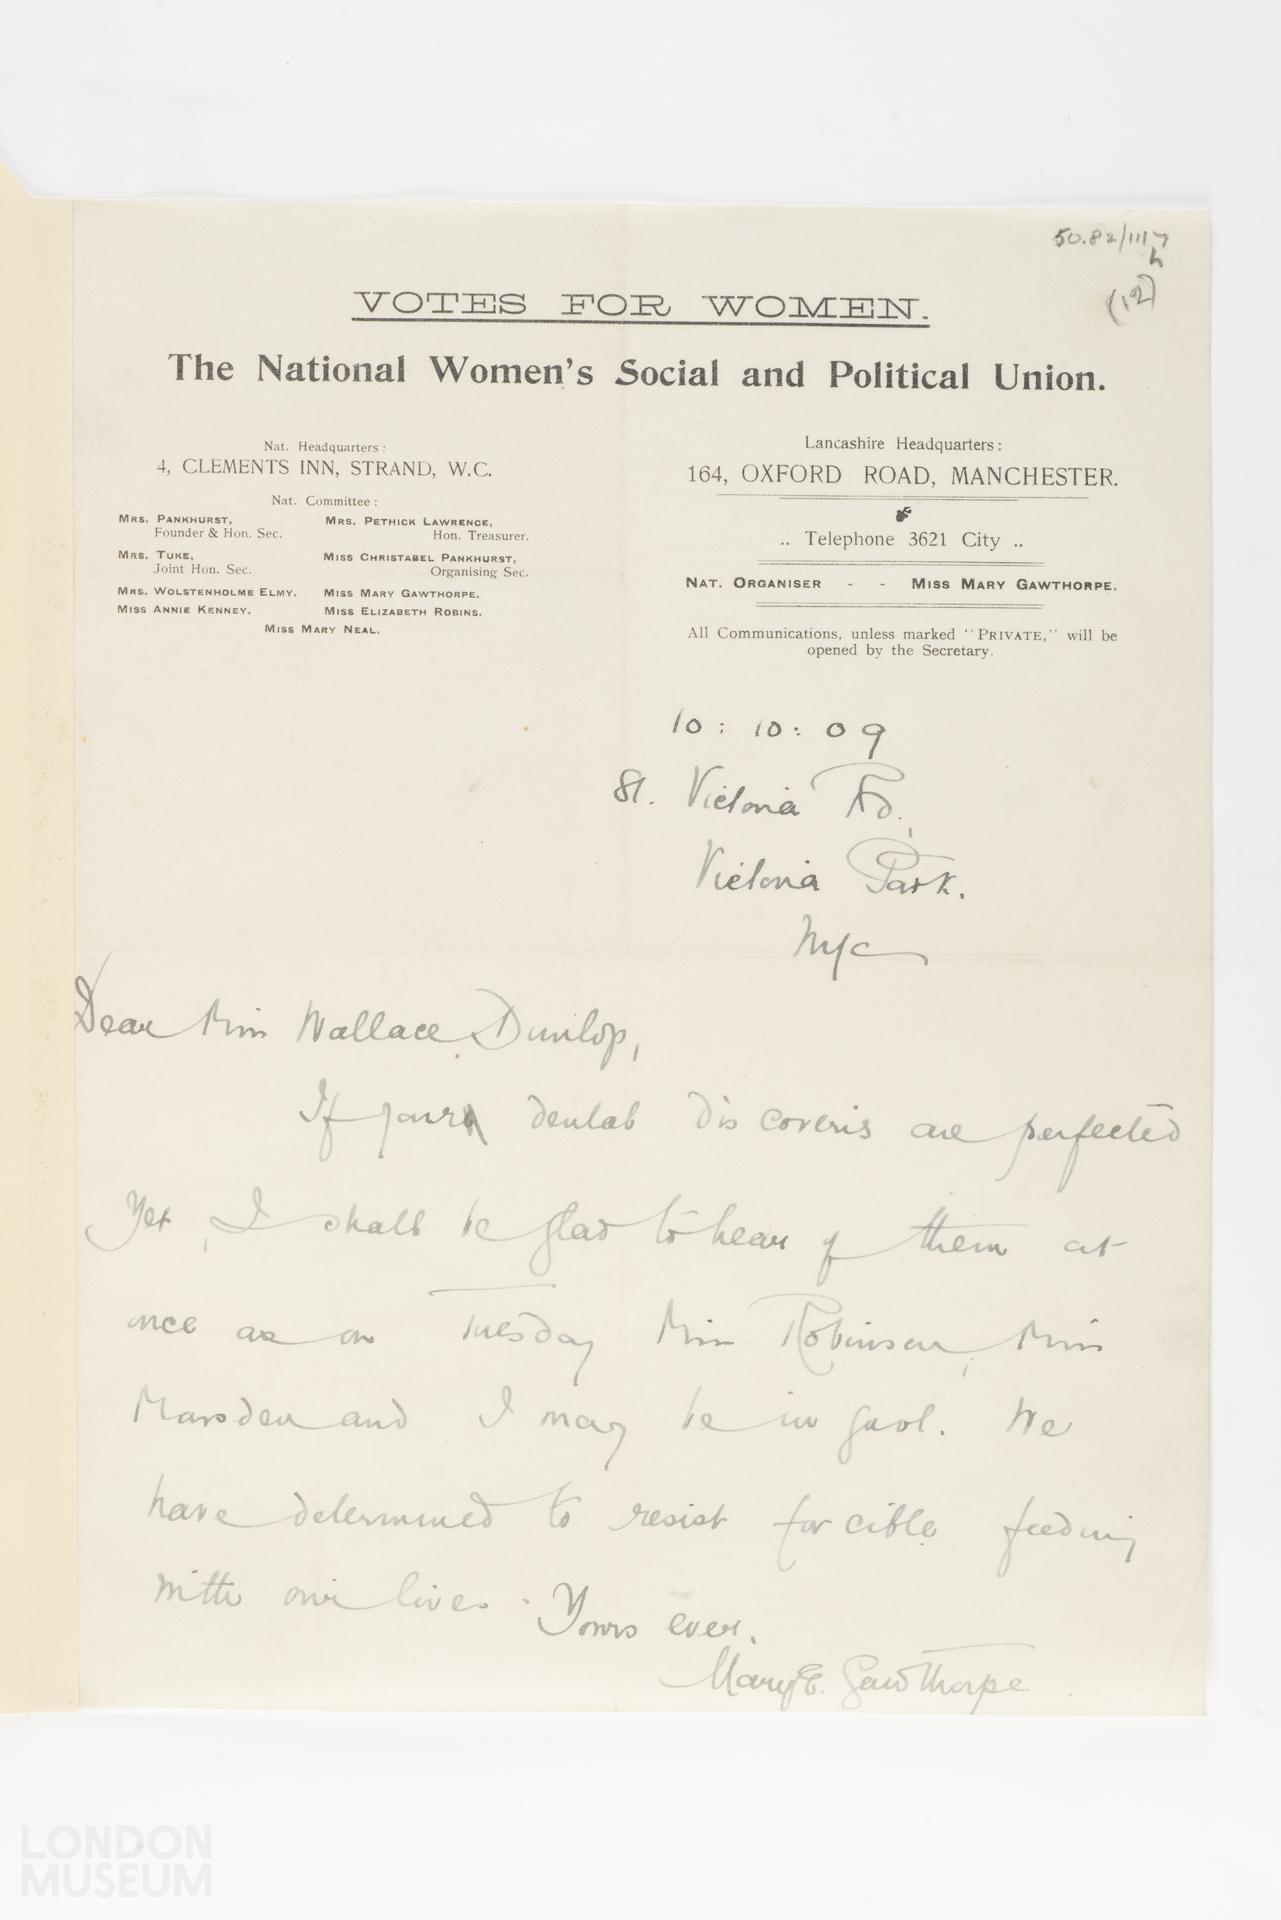 50.82/1117
h
(12)
VOTES FOR WOMEN.
The National Women's Social and Political Union.
Nat. Headquarters:
4, CLEMENTS INN, STRAND, W.C.
Nat. Committee:
MRS. PANKHURST, MRS. PETHICK LAWRENCE,
Founder & Hon. Sec. Hon. Treasurer.
MRS. TUKE, MISS CHRISTABEL PANKHURST,
Joint Hon. Sec. Organising Sec.
MRS. WOLSTENHOLME ELMY. MISS MARY GAWTHORPE.
MISS ANNIE KENNEY. MISS ELIZABETH ROBINS.
MISS MARY NEAL.
Lancashire Headquarters:
164, OXFORD ROAD, MANCHESTER.
.. Telephone 3621 City ..
NAT. ORGANISER - - MISS MARY GAWTHORPE.
All Communications, unless marked "PRIVATE," will be
opened by the Secretary.
10: 10: 09
81. Victoria Rd,
Victoria Park.
M/c
Dear Miss Wallace Dunlop,
If your dental discoveries are perfected
yet, I shall be glad to hear of them at
once as on Tuesday Miss Robinson, Miss
Marsden and I may be in gaol. We
have determined to resist forcible feeding
with our lives. Yours ever,
Mary E. Gawthorpe
LONDON
MUSEUM